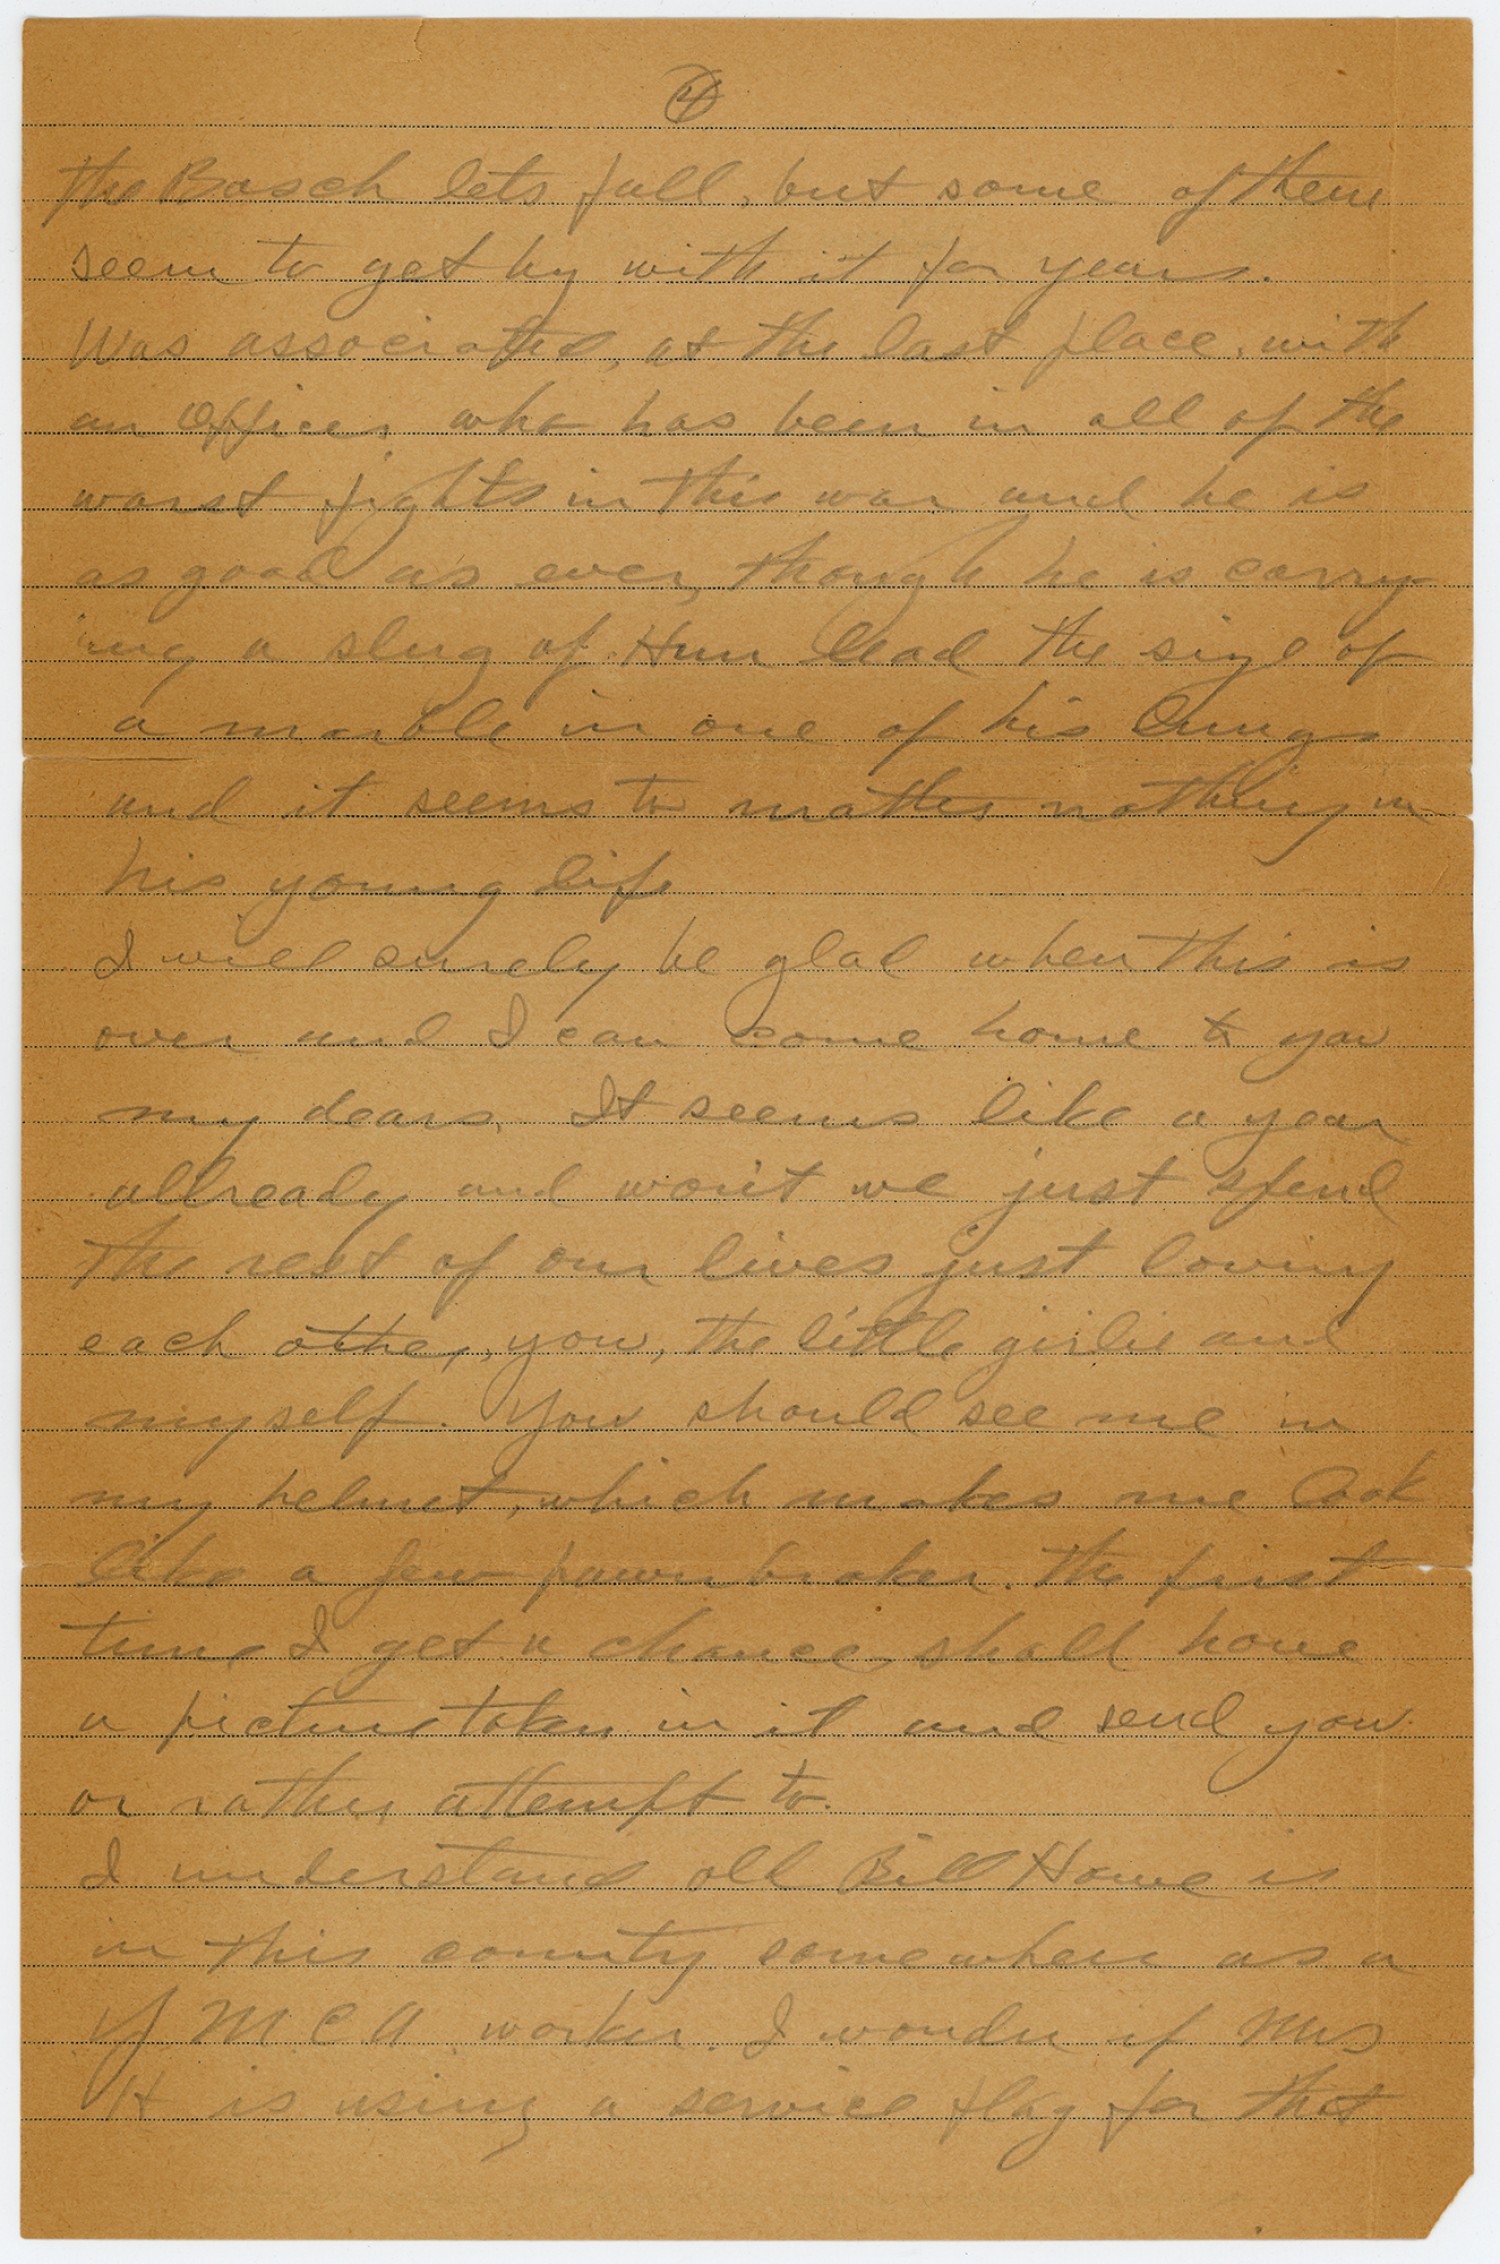 4
the Bosch lets fall, but some of them
seem to get by with it for years.
Was associated, at the last place, with
an Officer who has been in all of the
worst fights in this war and he is
as good as ever, though he is carry-
ing a slug of Hun lead the size of
a marble in one of his lungs
and it seems to matter nothing in
his young life
I will surely be glad when this is
over and I can come home to you
my dears. It seems like a year
allready and won't we just spend
the rest of our lives just loving
each other, you, the little girlie and
myself. You should see me in
my helmet, which makes me look
like a Jew pawn broker. The first
time I get a chance shall have
a picture taken in it and send you
or rather attempt to.
I understand old Bill Howe is
in this country somewhere as a
Y M C A worker. I wonder if Mrs
H is using a service flag for that